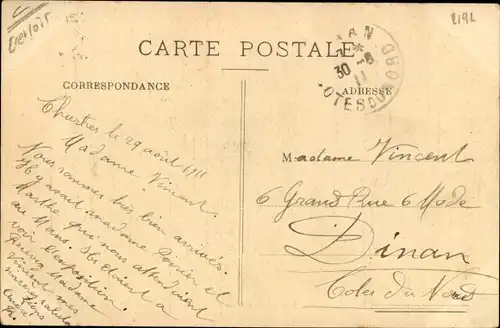 2192
CARTE POSTALE
CORRESPONDANCE
ADRESSE
30 -8
11
COTES DU NORD
Chartres le 29 août 1911
Madame Vincent
Nous sommes très bien arrivés.
Il y avait madame et
Marthe qui nous attendaient
au Mans. Ils étaient à
voir l'exposition.
Madame
Vincent mes
Madame Vincent
6 Grand Rue 6 Mode
Dinan
Cotes du Nord